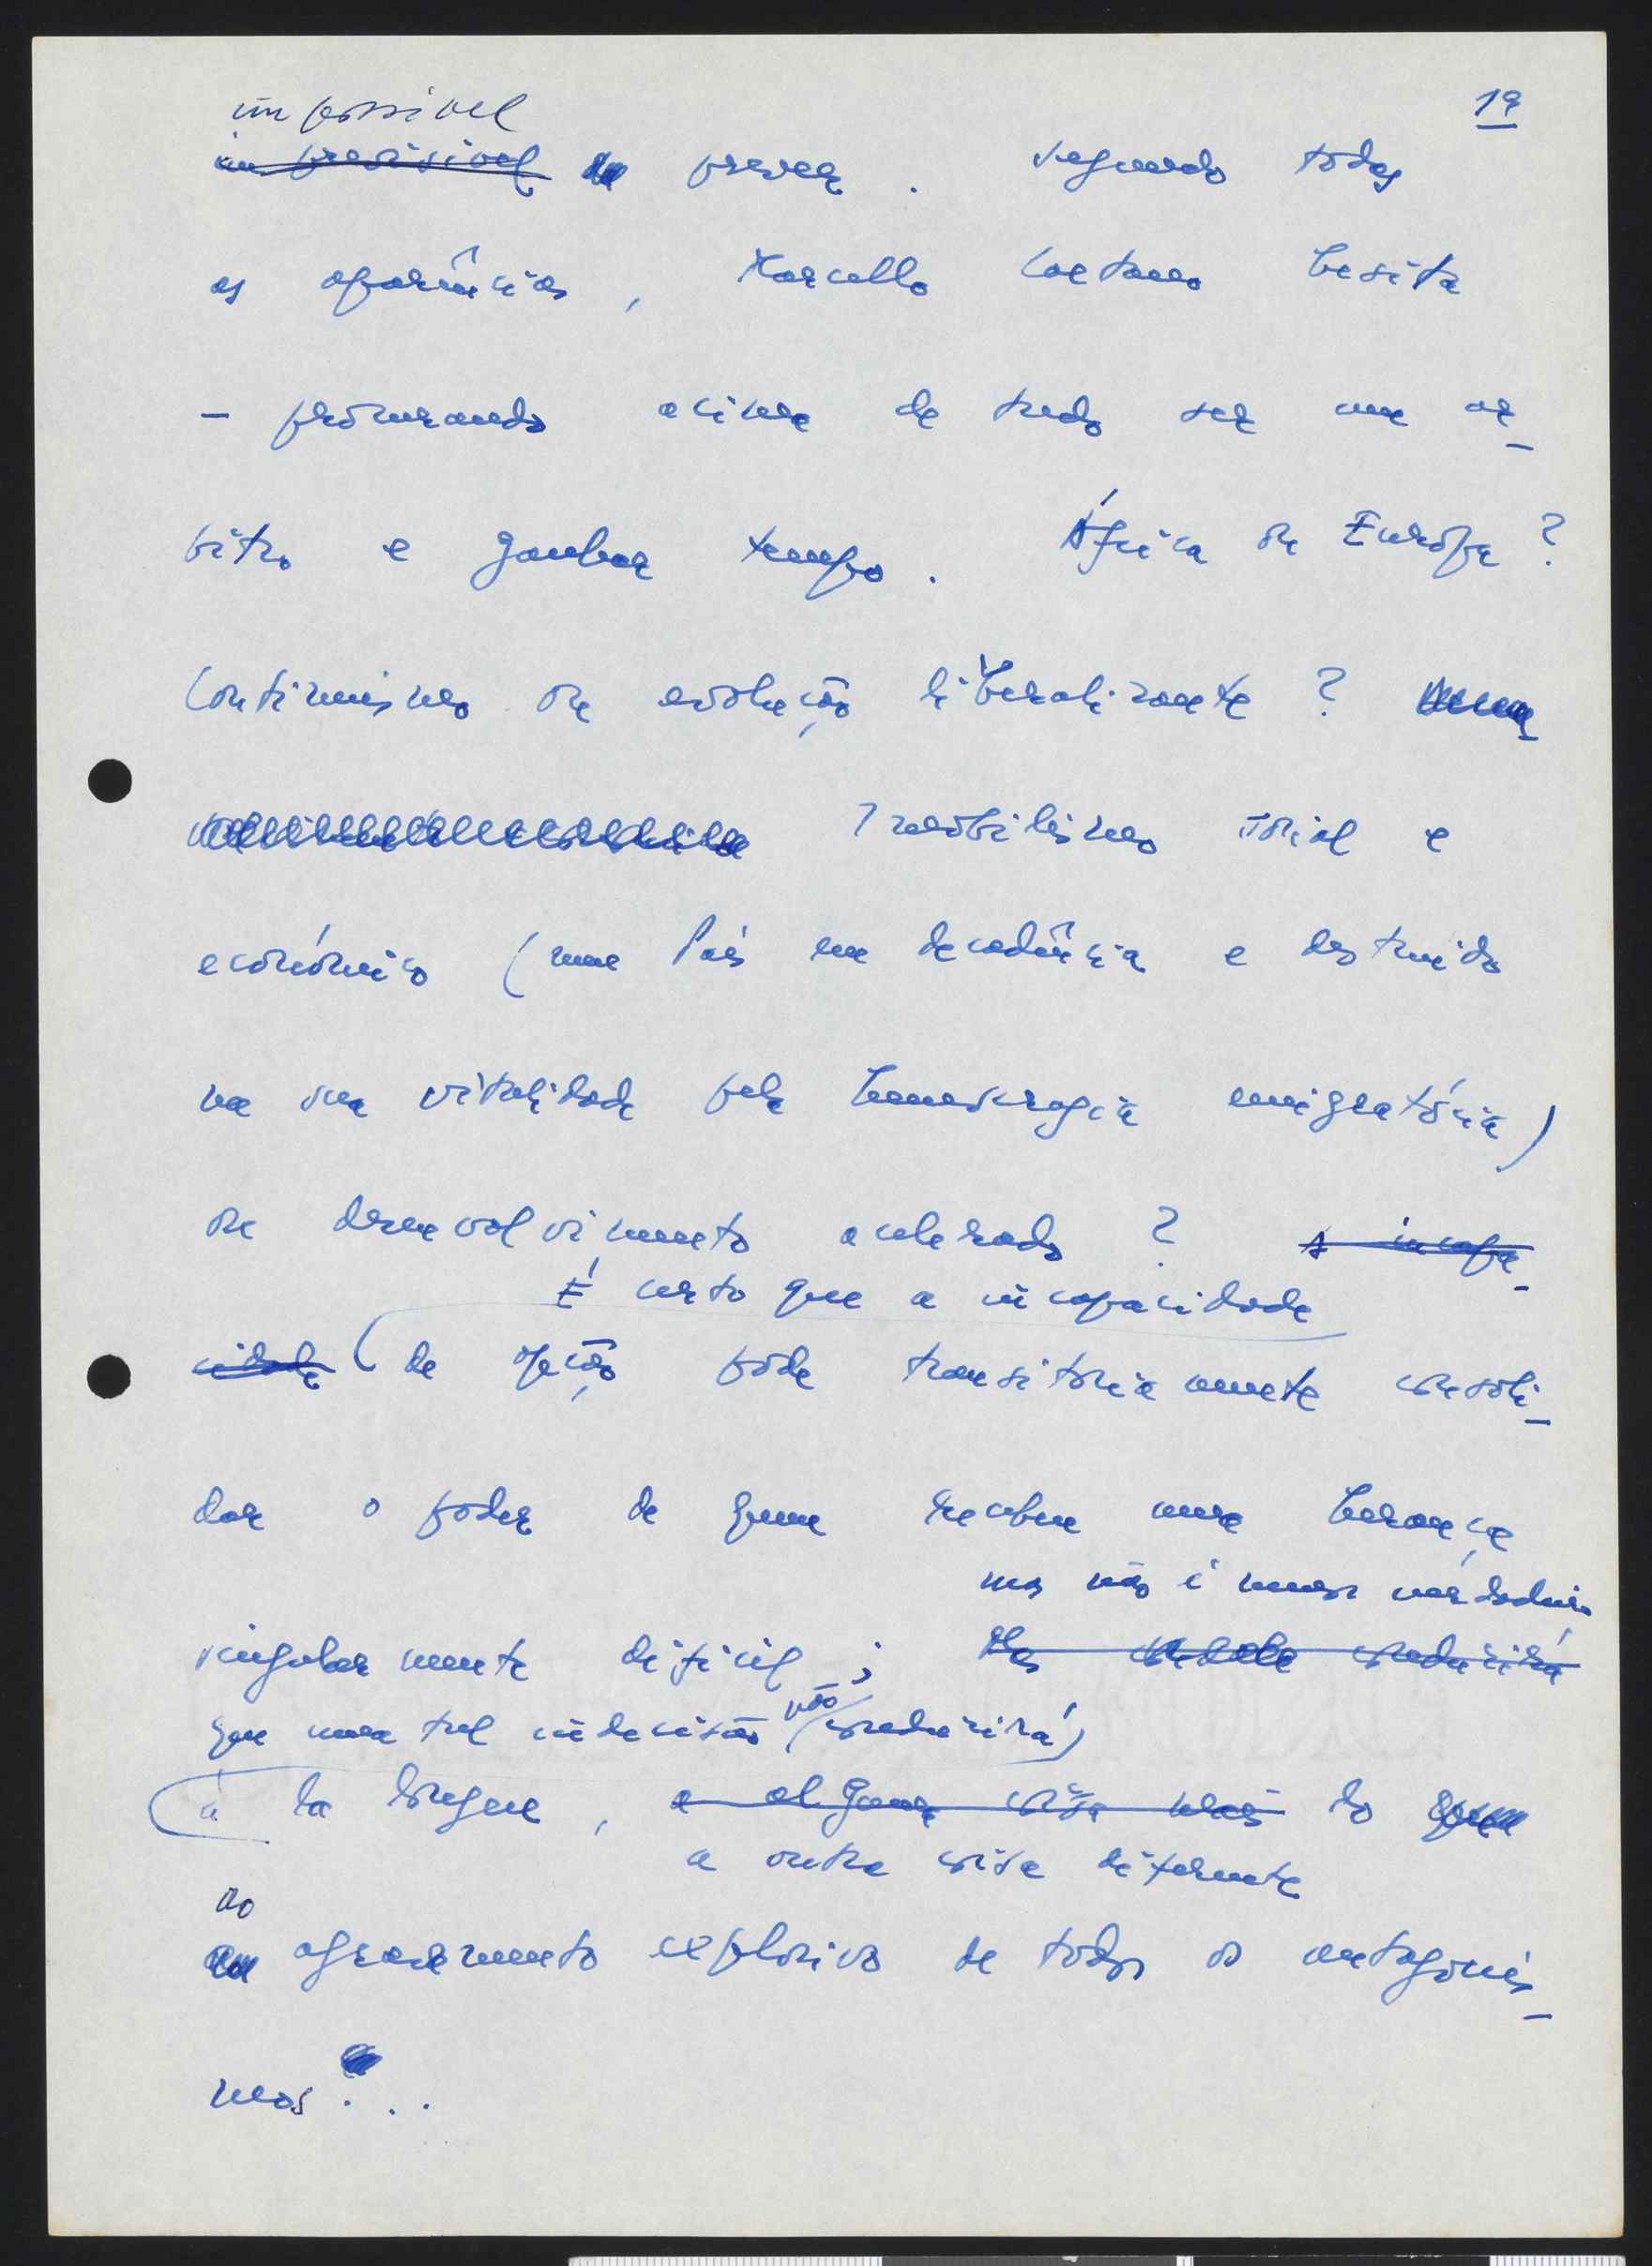 19
impossível
imprevisível prever. Segundo todas
as aparências, Marcello Caetano hesita
- procurando acima de tudo ser um ar-
bitro e ganhar tempo. África ou Europa?
Continuismo ou evolução liberalizante?
Imobilismo social e
económico (num País em decadência e destruido
na sua vitalidade pela hemorragia emigratória)
ou desenvolvimento acelerado? A incapa-
É certo que a incapacidade
cidade de opção pode transitoriamente consoli-
dar o poder de quem recebeu uma herança
mas não é menos verdadeiro
singularmente dificil; Mas conduzirá
que uma tal indecisão não conduzirá
à la longue, a alguma coisa mais do que
a outra coisa diferente
do
um agravamento explosivo de todos os antagonis-
mos...